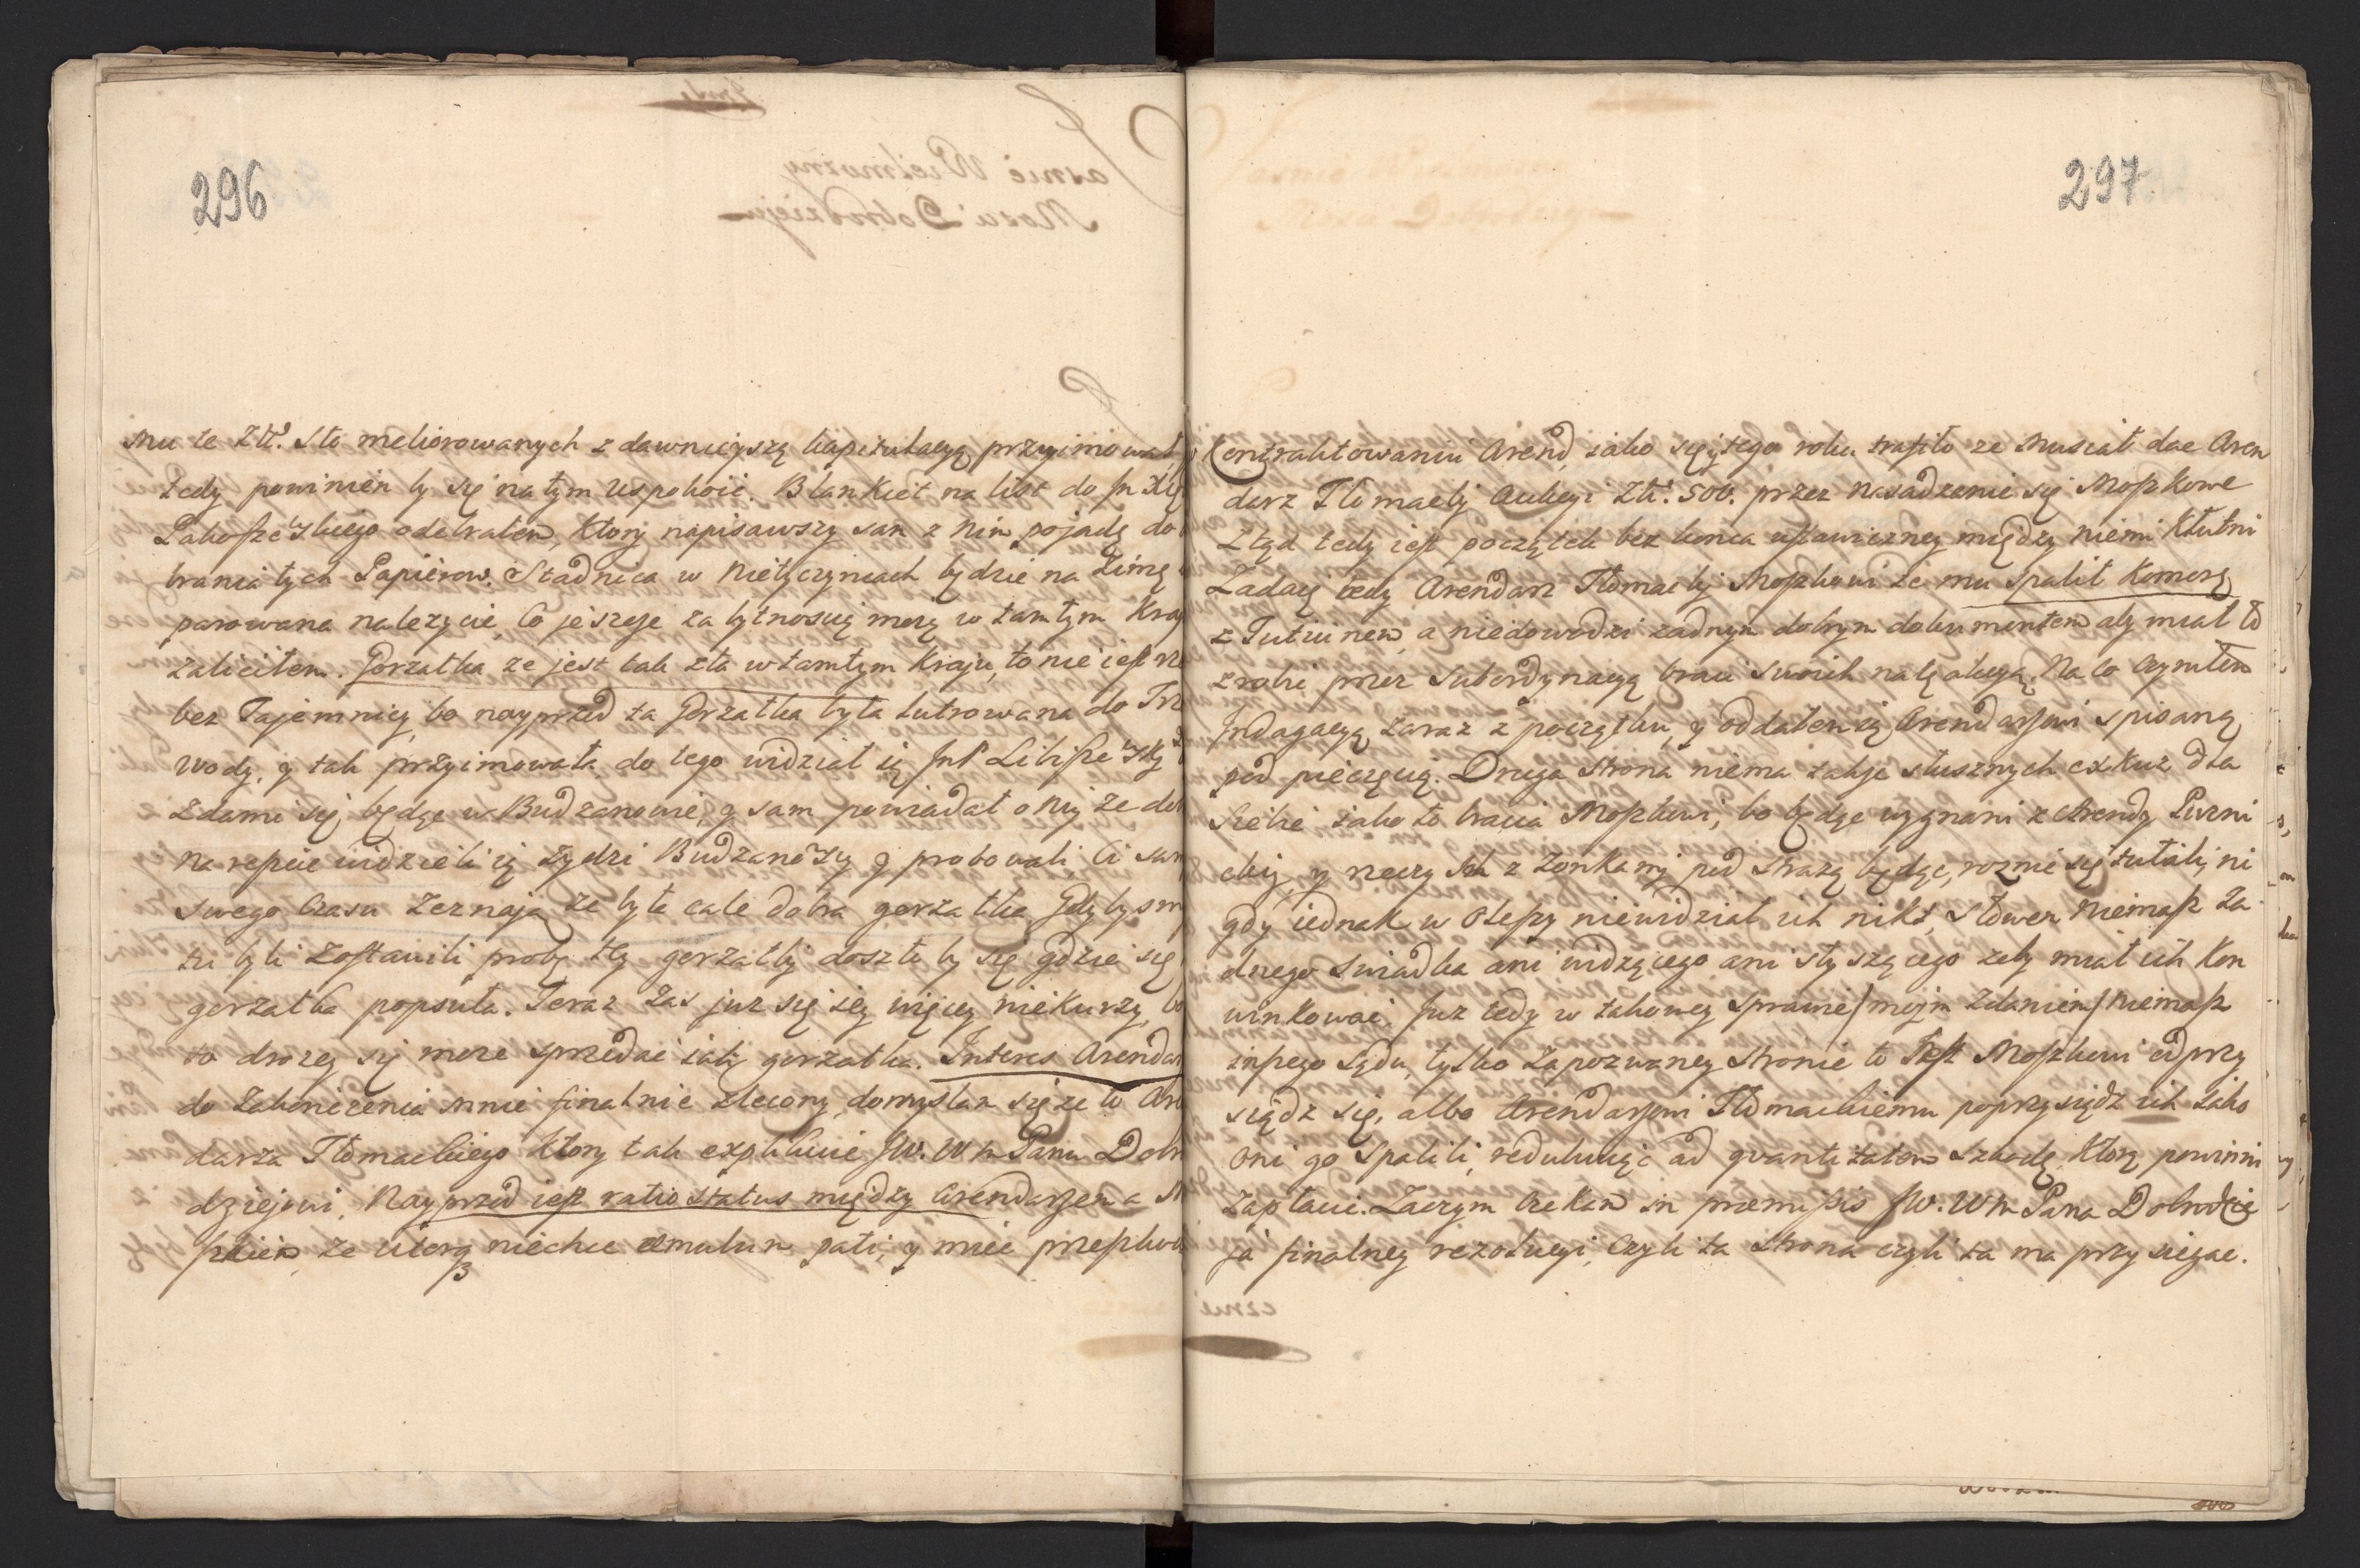 296
mu te Złł. sto meliorowanych z dawnieyszą kapitulacyą przyimował,
tedy powinien by się na tym uspokoić. Blankiet na list do
odebrałem, ktory napisawszy sam z nim pojadę do
brania tych Papierow. Stadnica w Nietyczyncach będzie na Zimę
parowana nalezycie, co jeszcze za bytnoscią moią w tamtym Kray
zaliciłem. Gorzałka ze jest tak zła w tamtym Kraju, to nie iest
bez Tajemnicy, bo nayprzod ta Gorzałka była lutrowana do
wody, y tak przyimowała, do tego widział ią
Zdami się, będąc w Budzanowie, y sam powiadał o niy ze
na repcie widzieli ią Zydzi Budzanscy y probowali, ci
swego czasu Zeznają, ze byłe cale dobra gorzałka. Gdyby
tu byli zostawili probę tey gorzałki, doszło by się gdzie się
gorzałka popsuła. Teraz zas juz się iey więcey niekurzy,
to drozey się moze sprzedac iak gorzałka. Interes
do zakonczenia mnie finalnie zlecony, domyslam się ze to
darza Tłomackiego ktory tak explikuie JW. W m Panu
dziejowi. Nayprzod iest ratio status między Arendarzem a
szkiem, ze ktorą niechce æmulum pati, y miec
297
Kontraktowaniu Arend, iako się y tego roku trafiło ze musiał dac Aren
darz Tłomacky Aukcyi Złł. 500. przez nasadzenie się Moszkowe
Ztąd tedy iest początek bez konca ustawiczney między niemi Kłutni
Zadaię tedy Arendarz Tłomacky Moszkowi ze mu spalił Komorę
z Tutiunem, a niedowodzi zadnym dobrym dokumentem aby miał to
zrobic przez subordynacyą braci swoich na tę akcyą. Na to czyniłem
Indagacyą zaraz z początku, y oddałem ią Arendarzowi spisaną
pod pieczęcią. Druga strona niema takze słusznych exkuz dla
siebie iako to bracia Moszkowi, bo będąc wygnani z Arendy
y rzeczy ich z Zonkami pod strazą będąc, roznie się tułali, ni
gdy iednak w niewidział ich nikt, słowem niemasz za
dnego swiadka ani widzącego ani słyszącego zeby miał ich kon
winkowac. Juz tedy w takowey sprawie /: moim zdaniem / niemasz
inszego sądu, tylko zapozwaney stronie to iest Moszkowi odprzy
siądz się, albo Arendarzowi Tłomackiemu poprzysiądz ich iako
oni go spalili, redukuiąc ad quantitatem szkodę, ktorą powinni
zapłacic. Zaczym czekam in præmissis JW. W m Pana Dobrodzie
ja finalney rezolucyi, czyli ta strona czyli ta ma przysiegac.